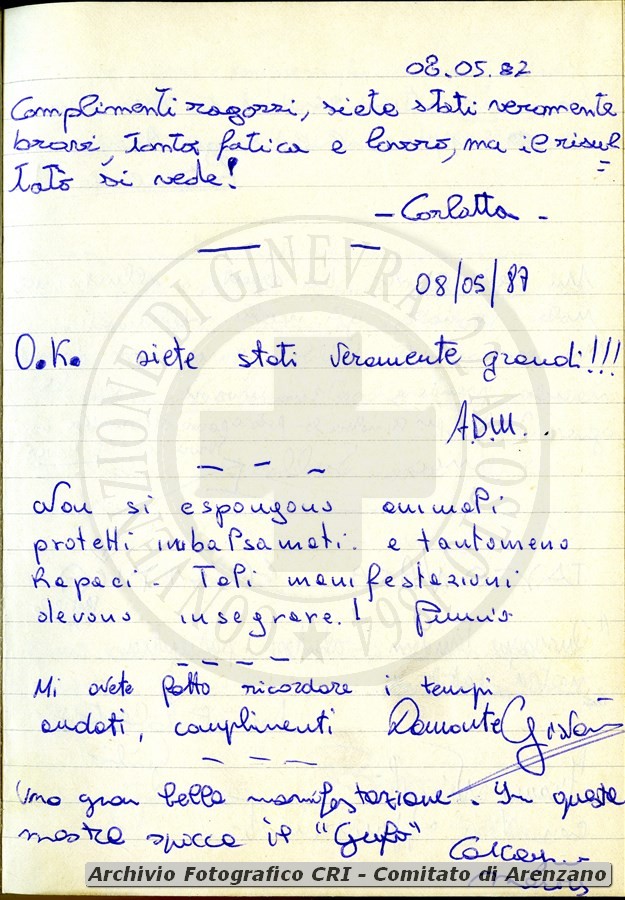 08.05.82
Complimenti ragazzi, siete stati veramente
bravi, tanta fatica e lavoro, ma il risul=
tato si vede!
- Carlotta -
08/05/87
O.K. siete stati veramente grandi!!!
A.D.M..
Non si espongono animali
protetti imbalsamati. e tantomeno
Rapaci - Tali manifestazioni
devono insegnare.!
Mi avete fatto ricordare i tempi
andati, complimenti Damonte
Una gran bella manifestazione. In questa
mostra spicca il "Gufo"
CONVENZIONE DI GINEVRA 22 AGOSTO 1864
Archivio Fotografico CRI - Comitato di Arenzano